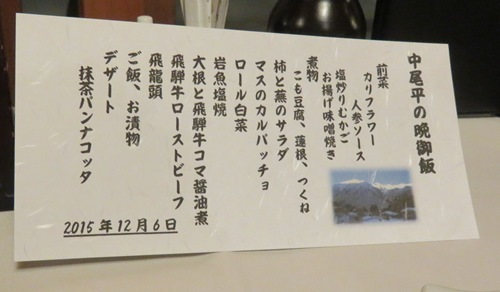 中尾平の晩御飯
前菜
カリフラワー
人参ソース
塩炒りむかご
お揚げ味噌焼き
煮物
こも豆腐、蓮根、つくね
柿と蕪のサラダ
マスのカルパッチョ
ロール白菜
岩魚塩焼
大根と飛騨牛コマ醤油煮
飛騨牛ローストビーフ
飛龍頭
ご飯、お漬物
デザート
抹茶パンナコッタ
2015年12月6日